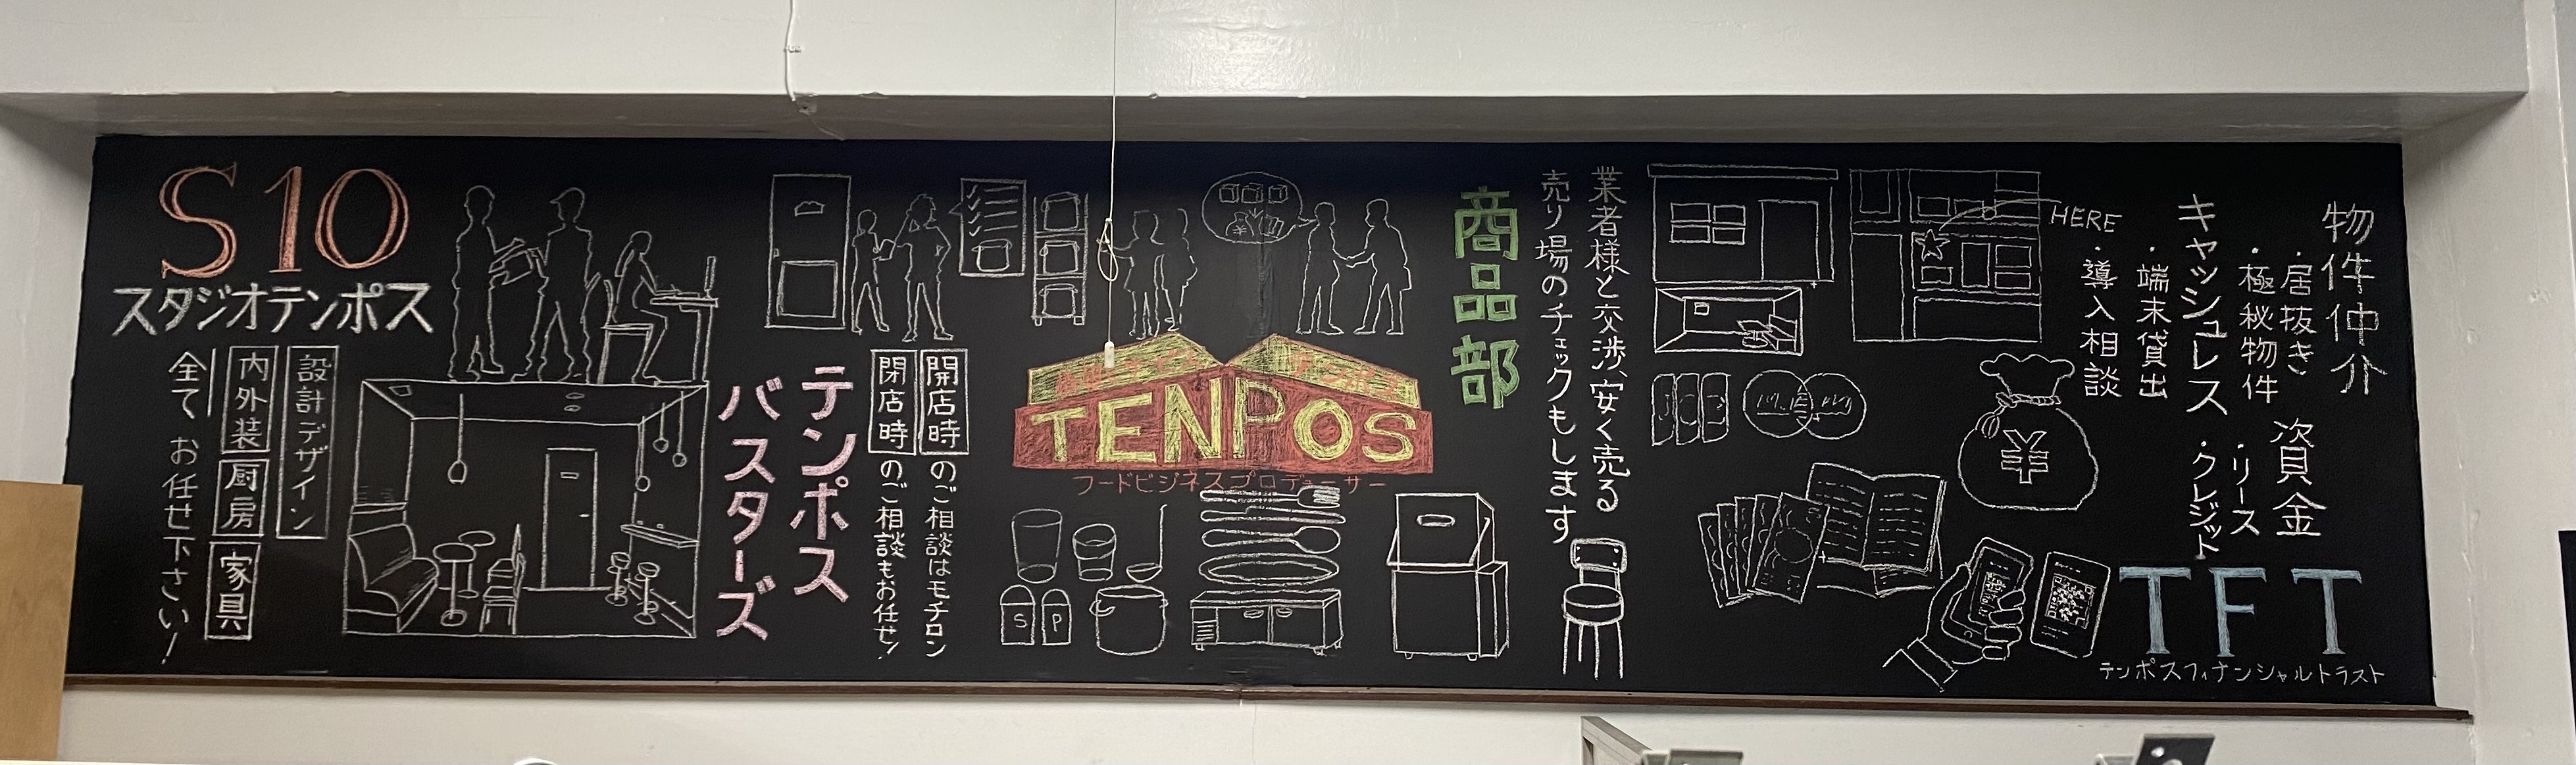 S10
スタジオテンポス
設計デザイン
内外装
厨房
家具
全て お任せ下さい!
テンポス
バスターズ
開店時のご相談はモチロン
閉店時のご相談もお任せ!
TENPOS
フードビジネスプロデューサー
S
P
商品部
業者様と交渉、安く売る
売り場のチェックもします
HERE
物件仲介
・居抜き
・極秘物件
キャッシュレス
・端末貸出
・導入相談
資金
・リース
・クレジット
¥
TFT
テンポスフィナンシャルトラスト